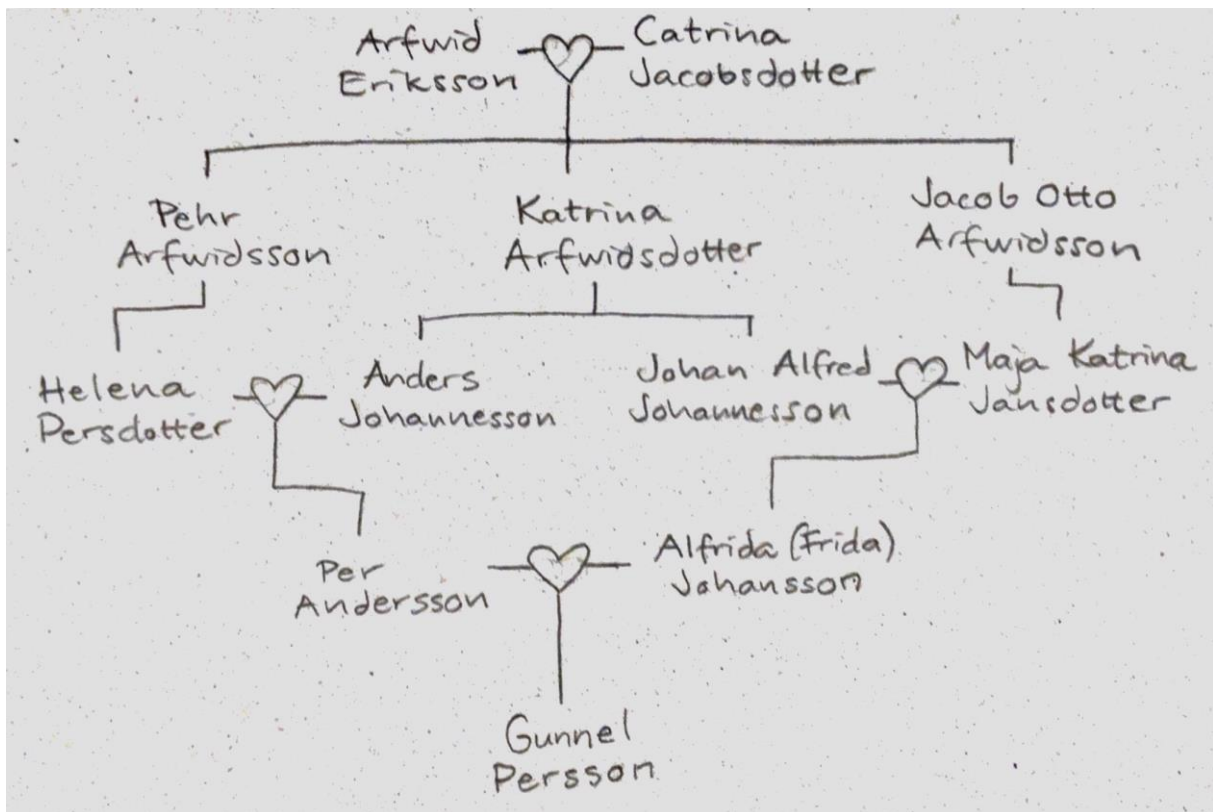 Arfwid
Eriksson
Catrina
Jacobsdotter
Pehr
Arfwidsson
Katrina
Arfwidsdotter
Jacob Otto
Arfwidsson
Helena
Persdotter
Anders
Johannesson
Johan Alfred
Johannesson
Maja Katrina
Jansdotter
Per
Andersson
Alfrida (Frida)
Johansson
Gunnel
Persson